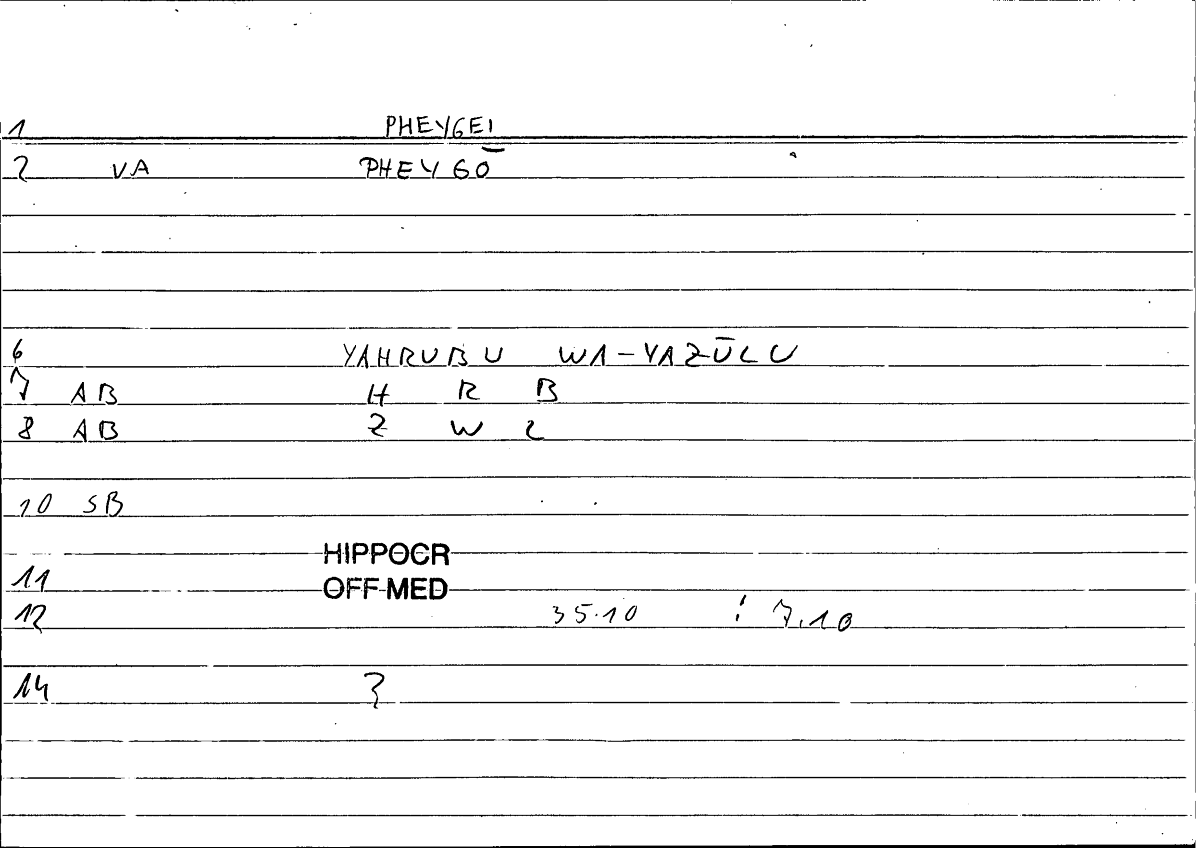 1 PHEYGEI
2 VA PHEYGŌ
6 YAHRUBU WA-YAZŪLU
7 AB H R B
8 AB Z W L
10 SB
HIPPOCR
11 OFF-MED
12 35.10 : 7.10
14 ?